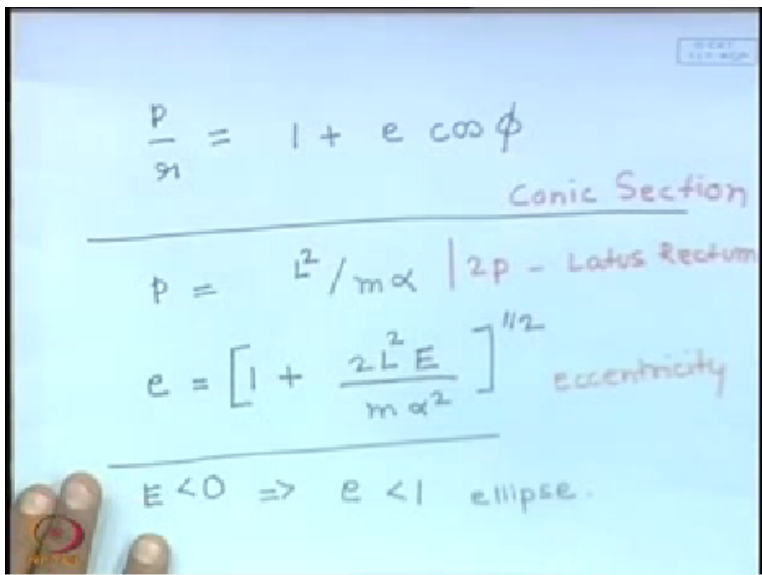 p/r = 1 + e cos ϕ
Conic Section
p = L²/mα | 2p - Latus Rectum
e = [1 + 2L²E/mα²]^1/2 eccentricity
E <0 => e <1 ellipse.